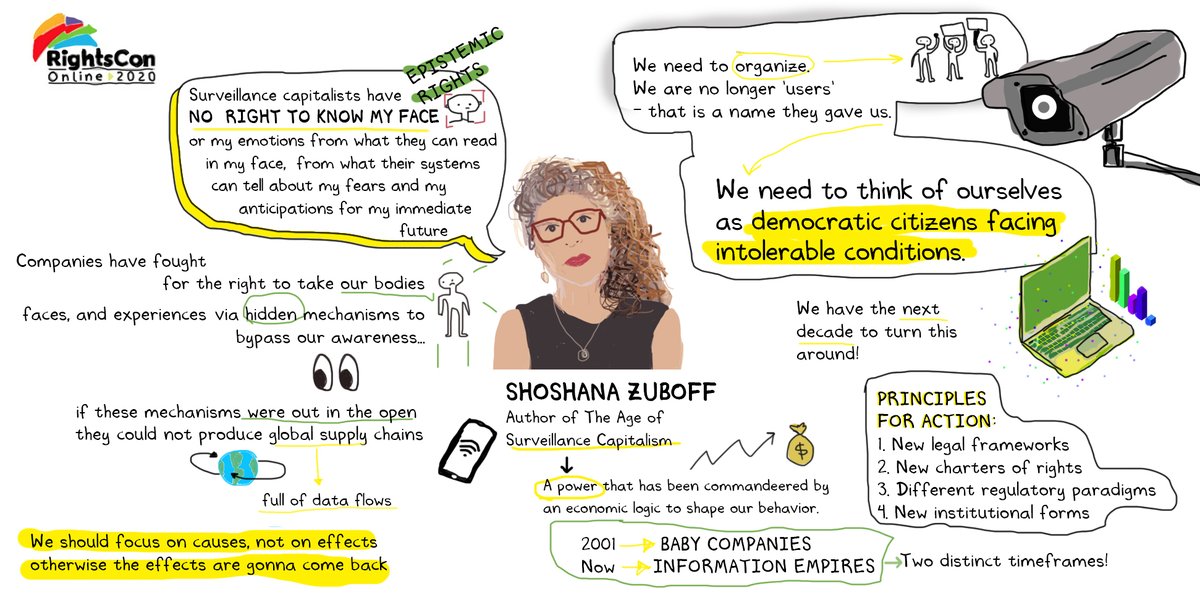 RightsCon
Online 2020
EPISTEMIC
RIGHTS
Surveillance capitalists have
NO RIGHT TO KNOW MY FACE
or my emotions from what they can read
in my face, from what their systems
can tell about my fears and my
anticipations for my immediate
future
Companies have fought
for the right to take our bodies
faces, and experiences via hidden mechanisms to
bypass our awareness...
if these mechanisms were out in the open
they could not produce global supply chains
full of data flows
We should focus on causes, not on effects
otherwise the effects are gonna come back
SHOSHANA ZUBOFF
Author of The Age of
Surveillance Capitalism
A power that has been commandeered by
an economic logic to shape our behavior.
$
2001 → BABY COMPANIES
Now → INFORMATION EMPIRES → Two distinct timeframes!
We need to organize.
We are no longer 'users'
- that is a name they gave us.
We need to think of ourselves
as democratic citizens facing
intolerable conditions.
We have the next
decade to turn this
around!
PRINCIPLES
FOR ACTION:
1. New legal frameworks
2. New charters of rights
3. Different regulatory paradigms
4. New institutional forms